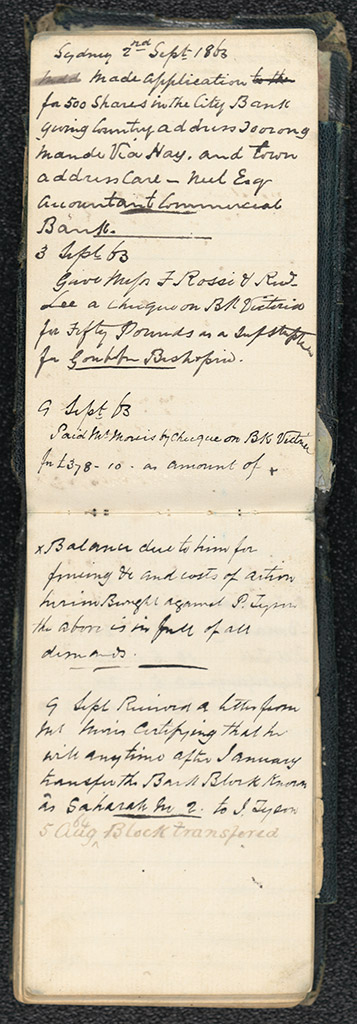 Sydney 2nd Sept 1863
made application to the
for 500 Shares in the City Bank
giving Country address Toorong
Mande Via Hay. and town
address Care - Neil Esq
Accountant Commercial
Bank.
3 Sept 63
Gave Messrs F. Rossi & Revd
Lee a Cheque on Bk Victoria
for Fifty Pounds as a Subscription
for Goulburn Bishopric.
9 Sept 63
Paid Mr Morris by Cheque on Bk Victoria
for £378-10- as amount of x
x Balance due to him for
fencing &c and costs of action
herein Brought against P. Tyson
the above is in full of all
demands.
9 Sept Received a letter from
Mr Morris Certifying that he
will any time after January
transfer the Back Block Known
as Saharah No 2. to J. Tyson
5 Aug 64 Block transfered